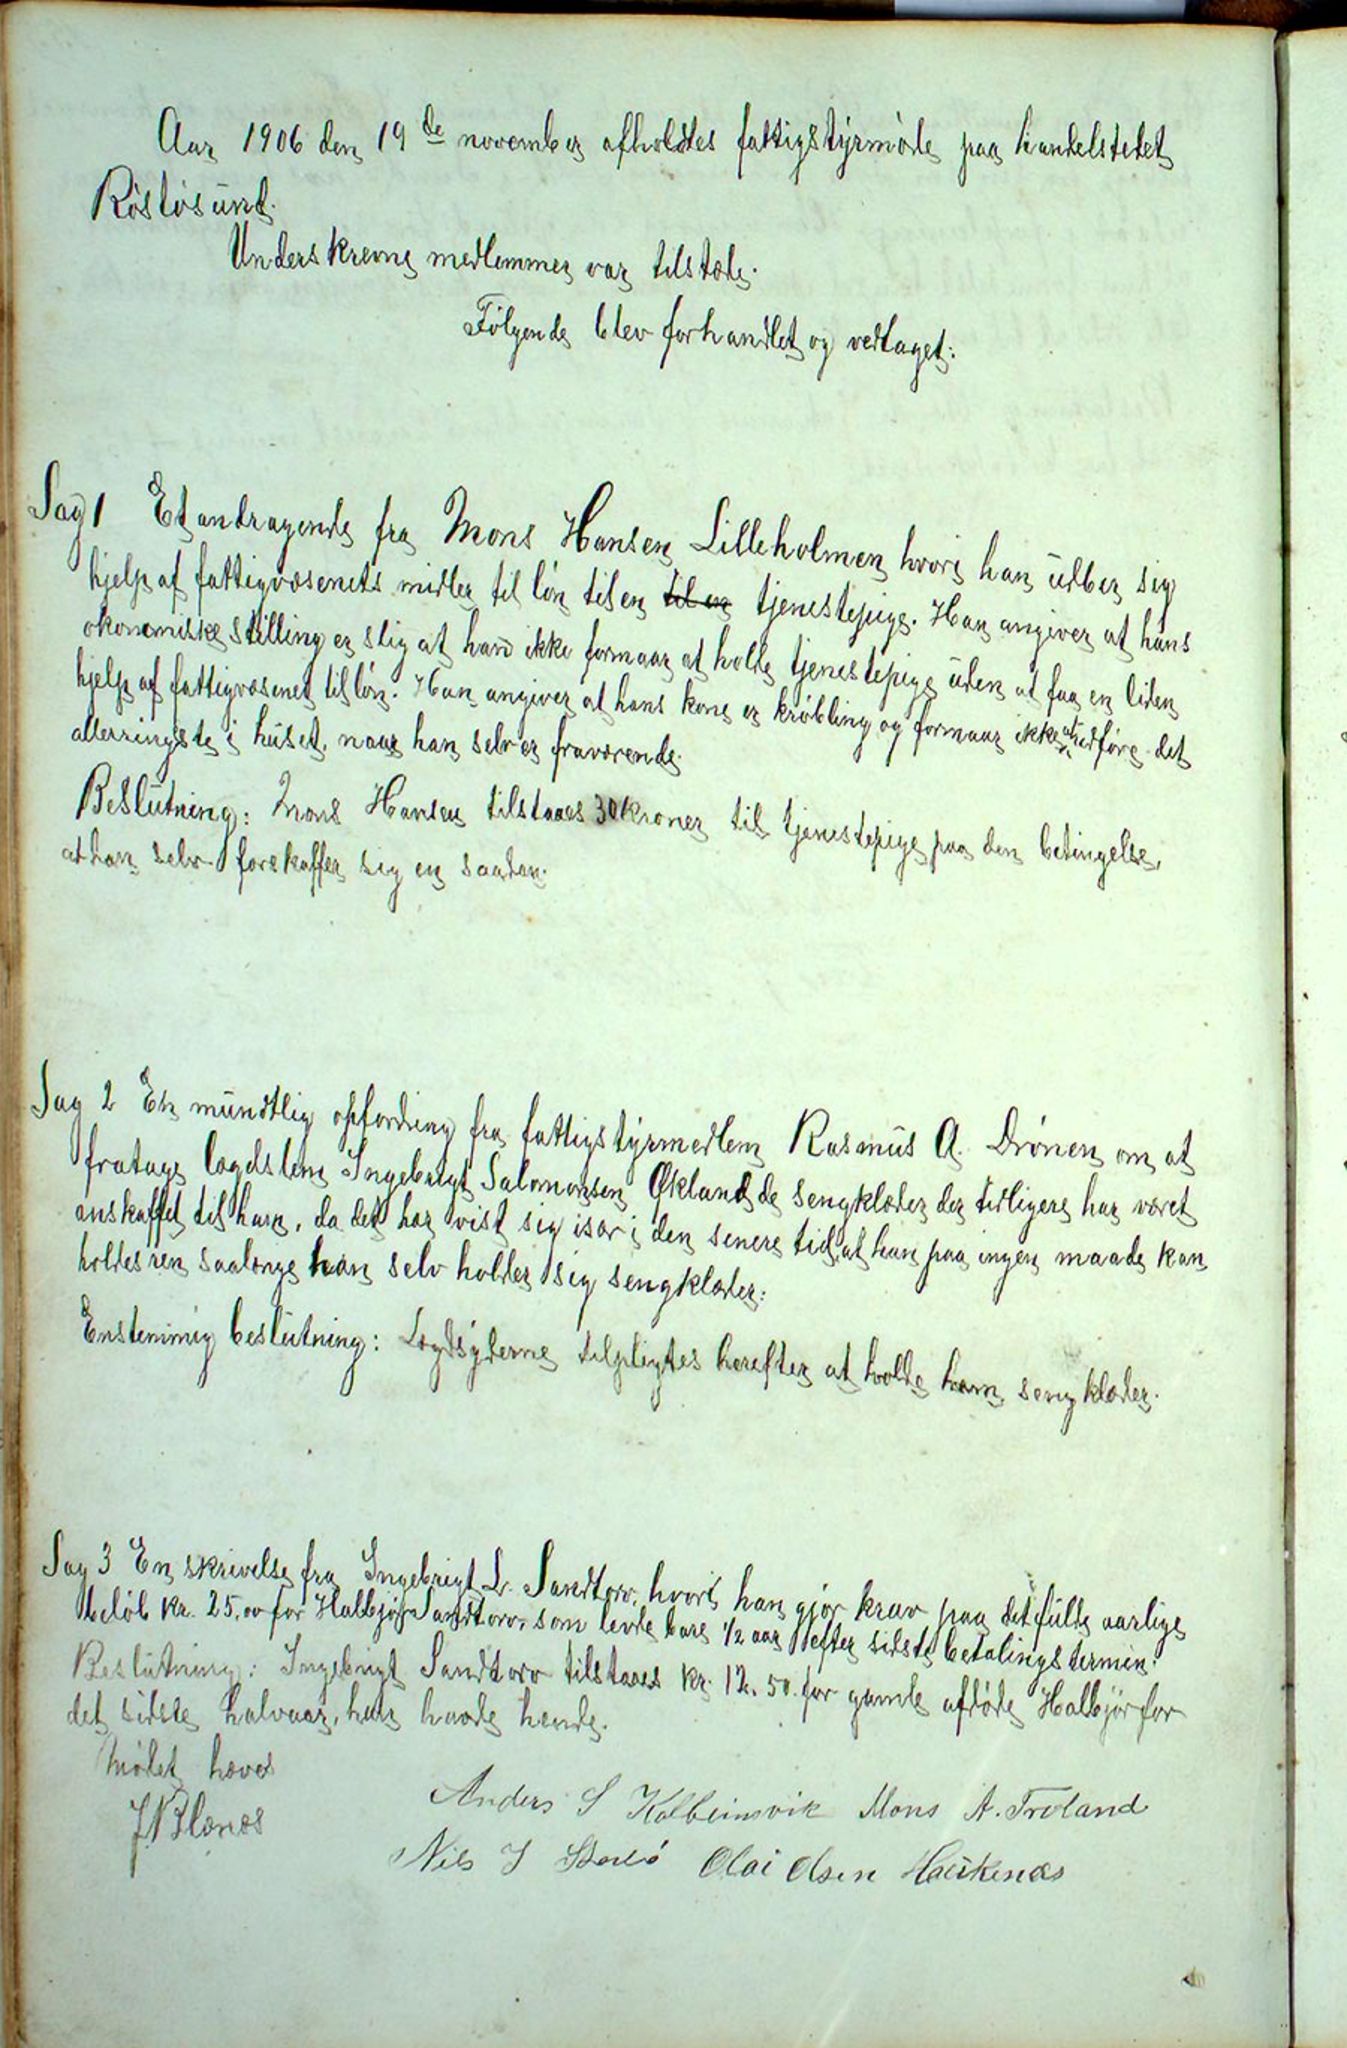 Aar 1906 den 19de november afholdtes fattigstyrmøde paa handelstedet
Røstøsund.
Underskrevne medlemmer var tilstæde.
Følgende blev forhandlet og vedtaget:
Sag 1 Et andragende fra Mons Hansen Lilleholmen hvori han udber sig
hjelp af fattigvæsenets midler til løn til en til en tjenestepige. Han angiver at hans
økonomiske stilling er slig at han ikke formaar at holde tjenestepige uden at faa en liden
hjelp af fattigvæsenet til løn. Han angiver at hans kone er krøbling og formaar ikke at udføre det
allerringeste i huset, naar han selv er fraværende.
Beslutning: Mons Hansen tilstaaes 30 kroner til tjenestepige paa den betingelse,
at han selv forskaffer sig en saadan.
Sag 2 En mundtlig opfordring fra fattigstyrmedlem Rasmus A. Drønen om at
fratage lægdslem Ingebrigt Salomonsen Økland de sengklæder der tidligere har været
anskaffet til ham, da det har vist sig især i den senere tid, at han paa ingen maade kan
holdes ren saalænge han selv holder sig sengklæder.
Enstemmig beslutning: Lægdsyderne tilpligtes herefter at holde ham sengklæder.
Sag 3 En skrivelse fra Ingebrigt L. Sandtorv, hvori han gjør krav paa det fulde aarlige
beløb kr. 25,00 for Halbjør Sandtorv, som levde bare 1/2 aar efter sidste betalingstermin.
Beslutning: Ingebrigt Sandtorv tilstaaes kr. 12.50 for gamle afdøde Halbjør for
det sidste halvaar, han havde hende.
Mødet hæves
J Blænes
Anders S Kolbeinsvik Mons A. Troland
Nils J Olai Olsen Haukenæs